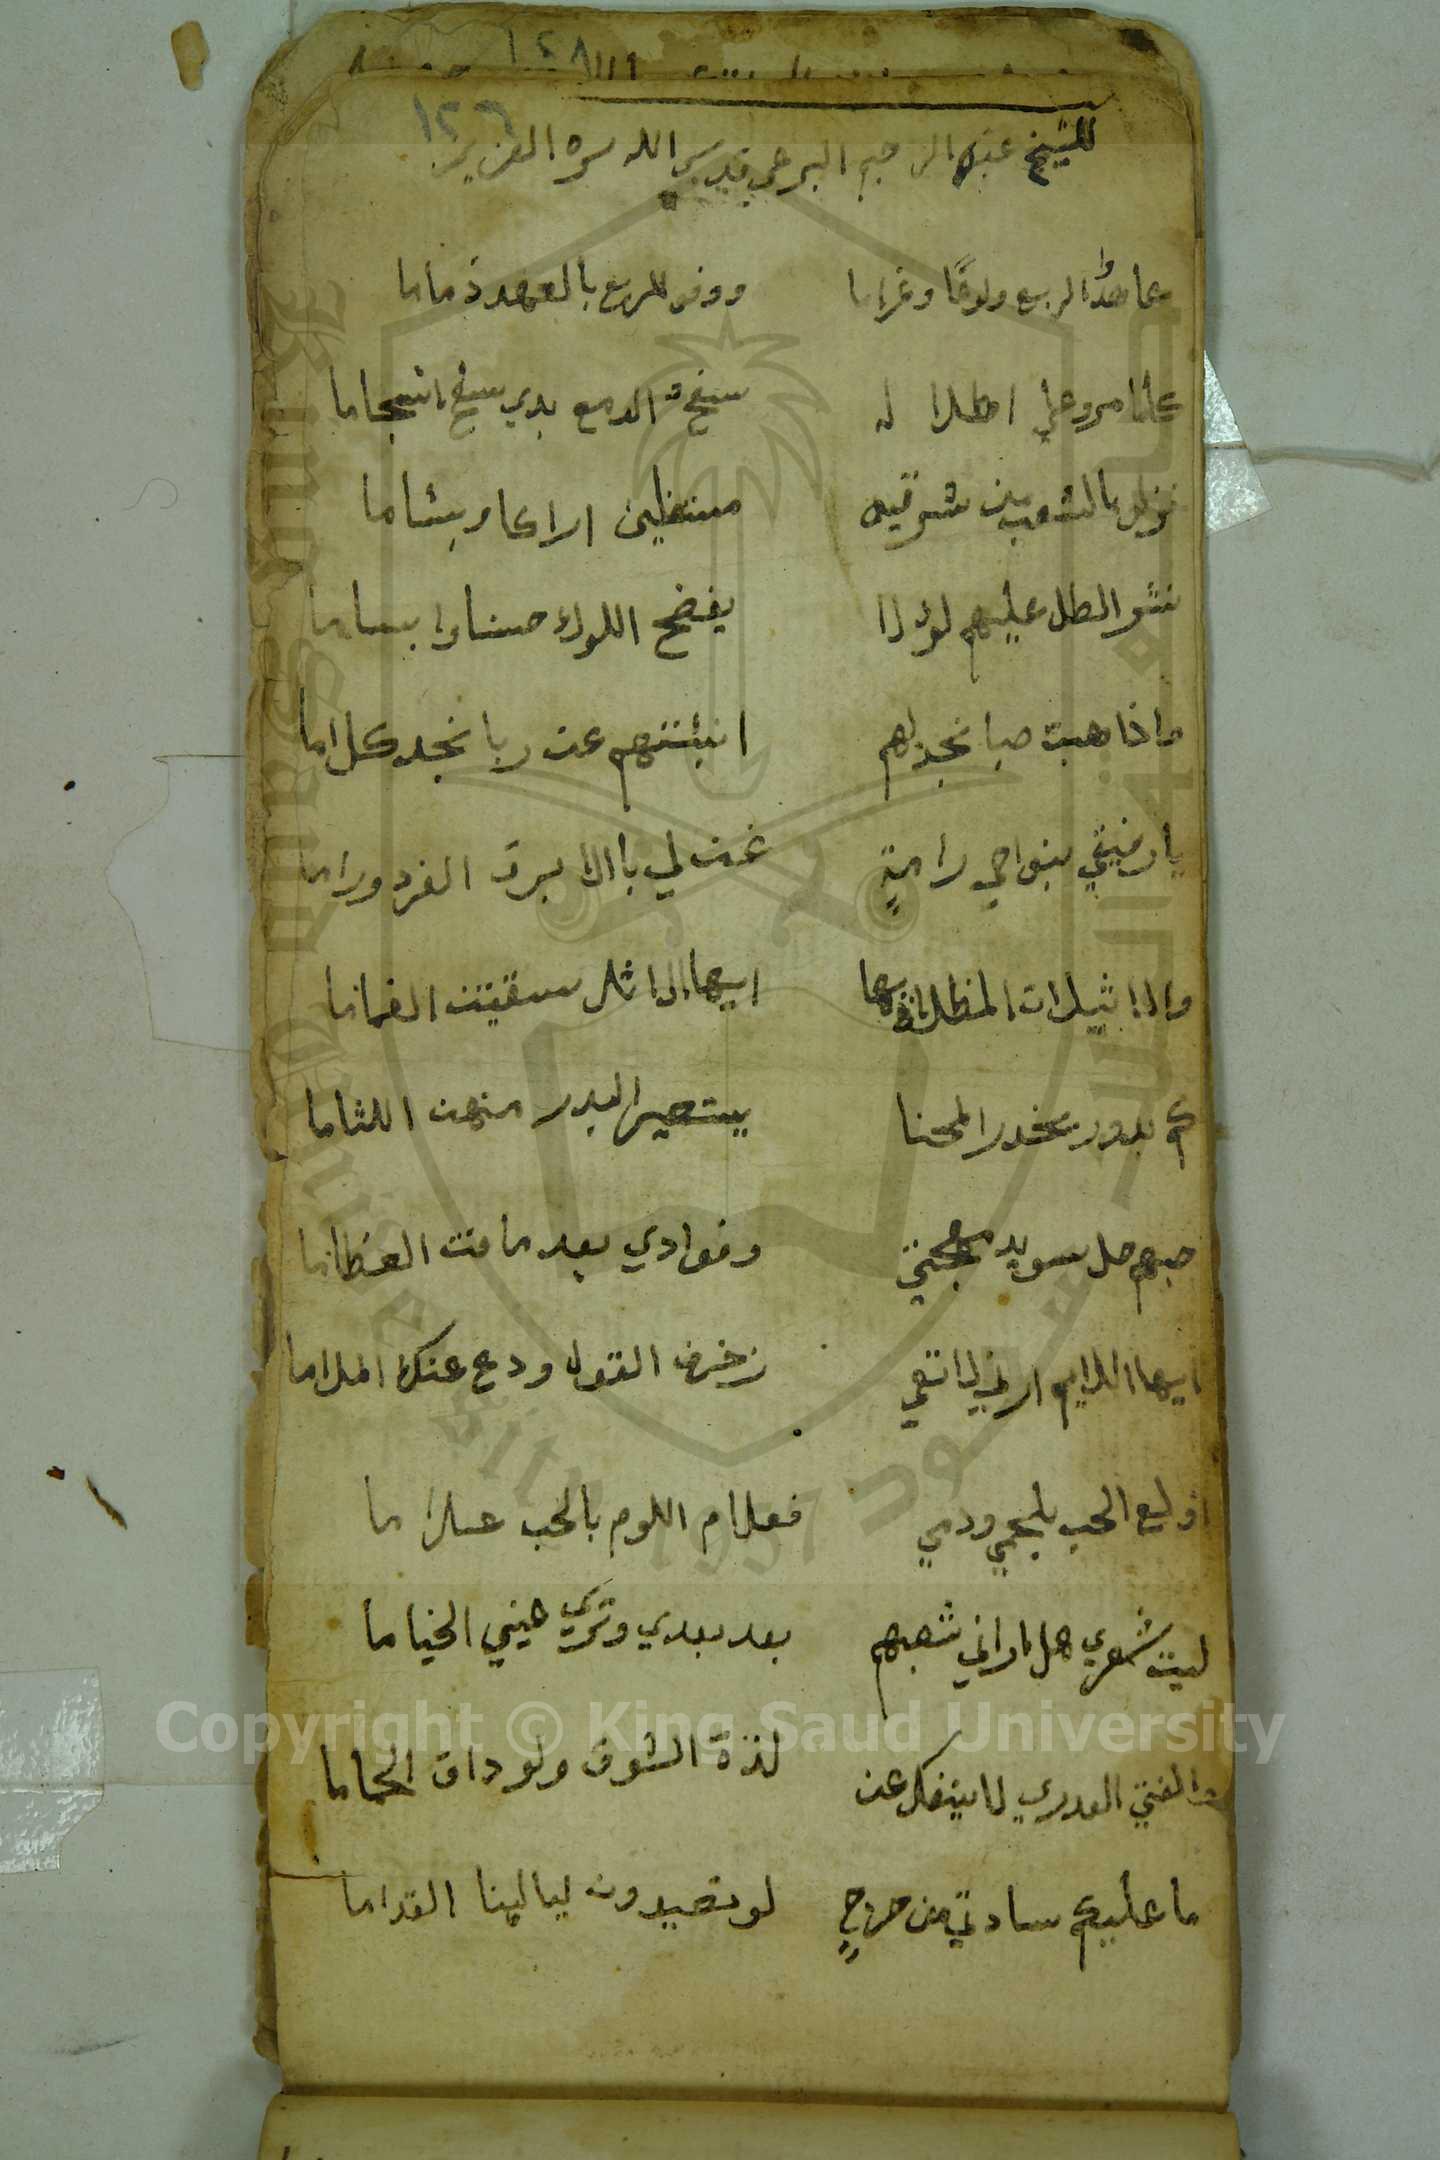 ١٢٦
للشيخ عبد الرحيم البرعي قدس الله سره العزيز
عاهدوا الربع ولوعًا وغراما ووفو للربع بالعهد ذماما
كلما مروعلي اطلا له سفحو الدمع بدي سفح انسجاما
نزلو بالشعب من شرقيه مستظلين اراكا وبشاما
نثر الطل عليهم لؤلؤا يفضح اللولو حسنا وابتساما
ماذا هبت صبا نجد لهم انبئتهم عن ربا نجد كلاما
يا رفيقي بنواحي رامةٍ غن لي باالابرق الفرد وراما
والاثيلات المظلات بها ايها الاثل سقيت الغماما
كم بدور بخدر المحنا يستعير البدر منهن اللثاما
حبهم حل سويد مهجتي وفوادي بعد ما فتت العظاما
ايها اللايم ارني لا تقي زخرف القول ودع عنك الملاما
اولع الحب بلحمي ودمي فعلام اللوم بالحب علاما
ليت شعري هل اراني شعبهم بعد بعدي وترى عيني الخياما
والفتى العدري لا ينفك عن لذة الشوق ولو داق الحماما
ما عليكم سادتي من حرجٍ لو تعيدون ليالينا القداما
King Saud University
1957
Copyright © King Saud University